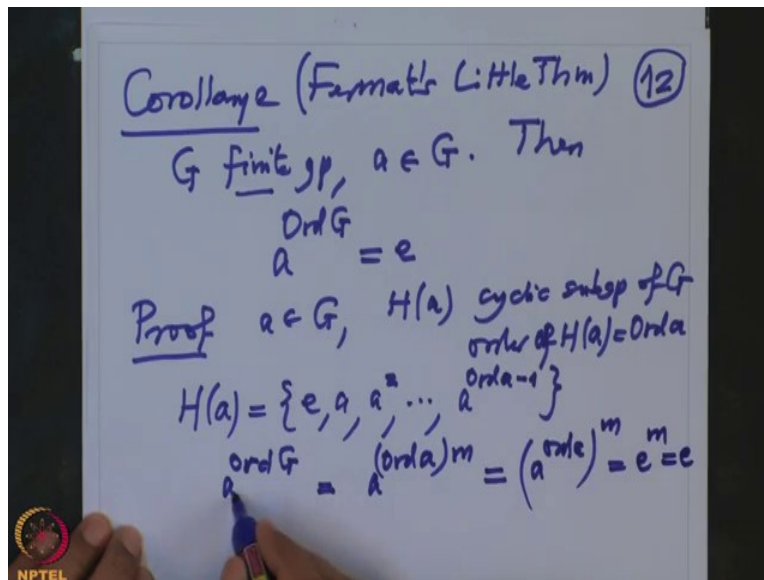 Corollary (Fermat's Little Thm) 12
G finite gp, a ∈ G. Then
a^{Ord G} = e
Proof a ∈ G, H(a) cyclic subgp of G
order of H(a) = Ord a
H(a) = {e, a, a^2, ..., a^{Ord a-1}}
a^{Ord G} = a^{(Ord a)m} = (a^{Ord a})^m = e^m = e
NPTEL